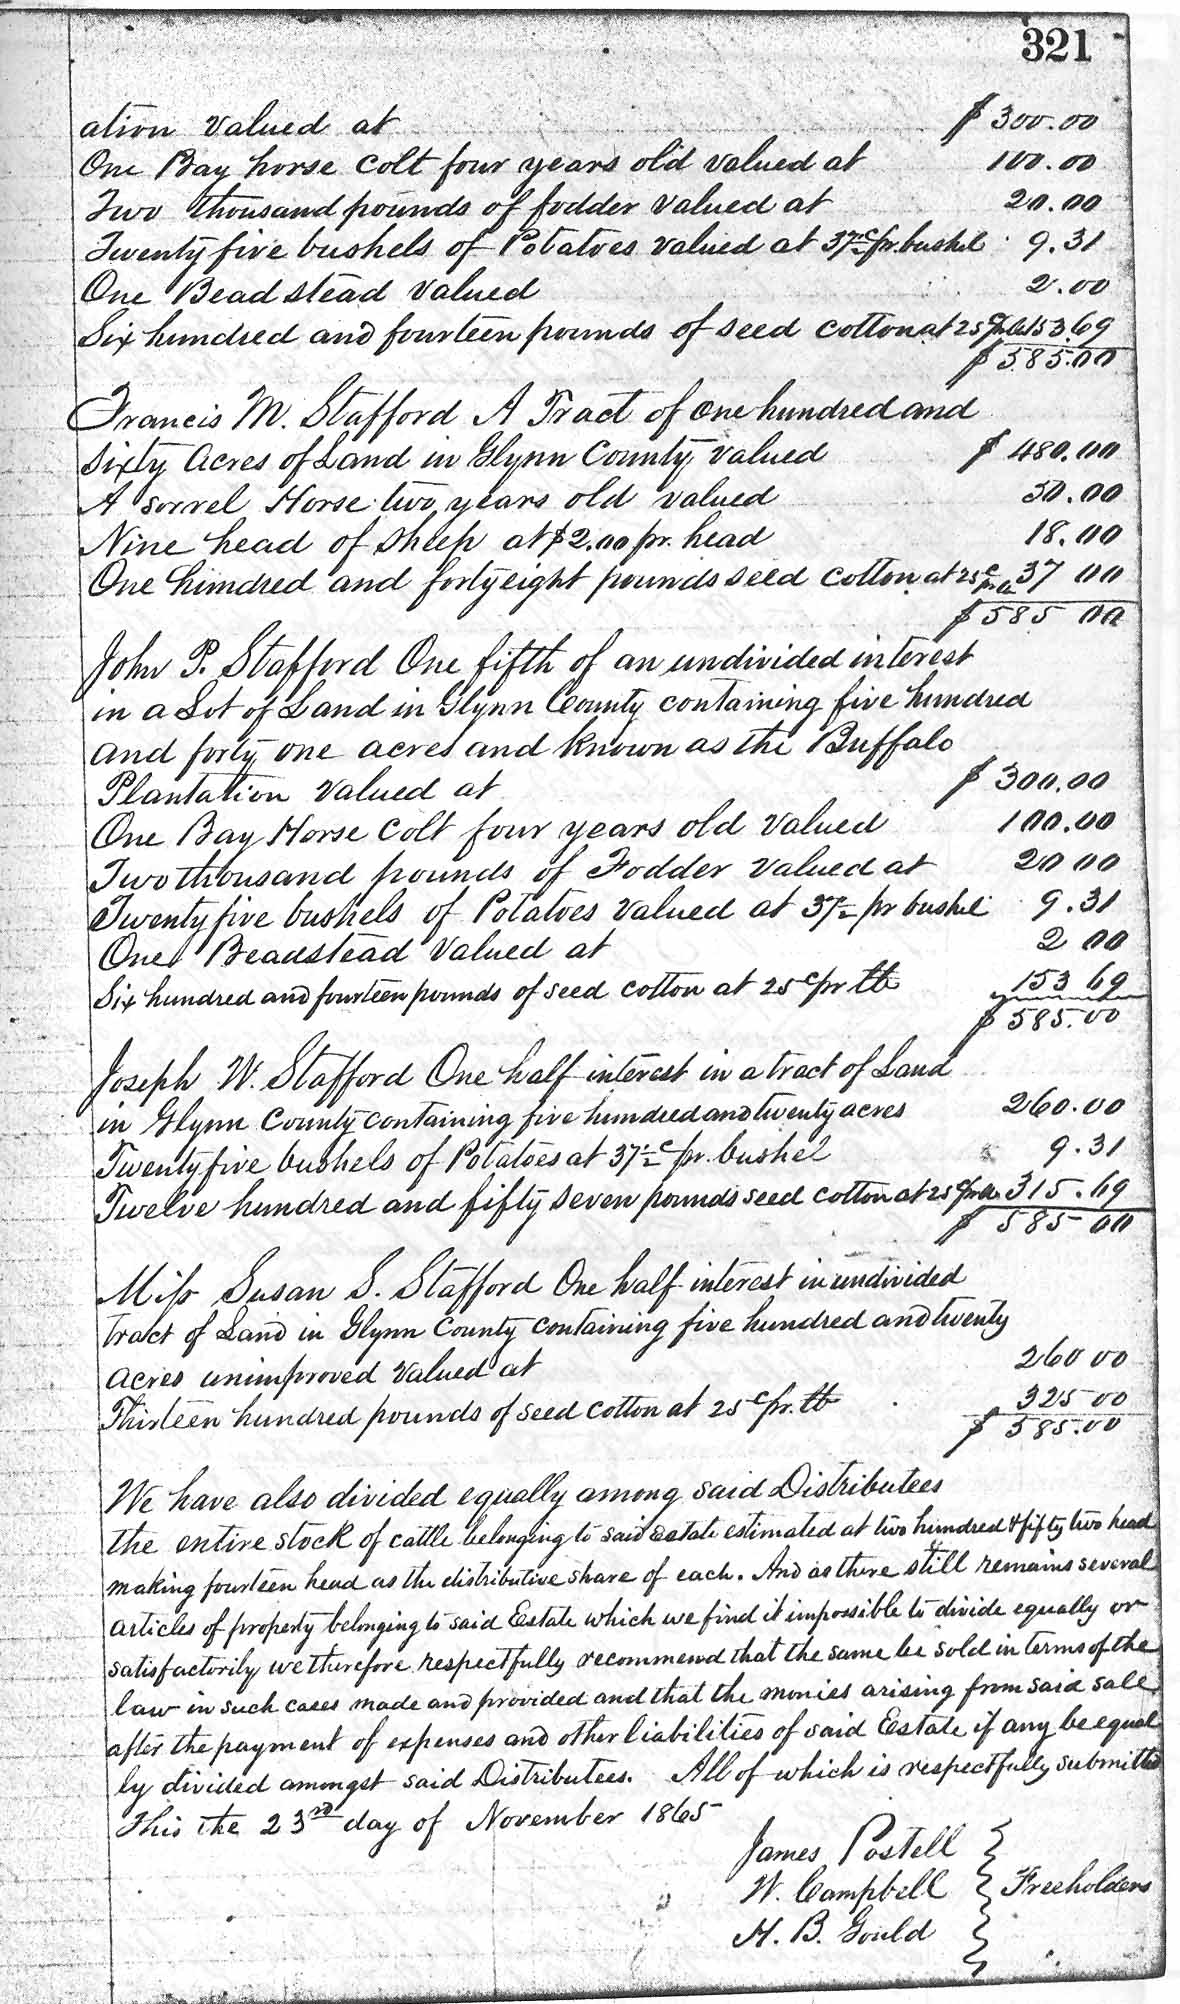 321
ation valued at $300.00
One Bay horse colt four years old valued at 100.00
Two thousand pounds of fodder valued at 20.00
Twenty five bushels of Potatoes valued at 37½c pr. bushel 9.31
One Beadstead valued 2.00
Six hundred and fourteen pounds of seed cotton at 25c pr lb 153.69
$585.00
Francis M. Stafford A Tract of one hundred and
sixty Acres of Land in Glynn County valued $480.00
A sorrel Horse two years old valued 50.00
Nine head of sheep at $2.00 pr. head 18.00
One hundred and forty eight pounds seed cotton at 25c pr lb 37 00
$585 00
John P. Stafford One fifth of an undivided interest
in a Lot of Land in Glynn County containing five hundred
and forty one acres and known as the Buffalo
Plantation valued at $300.00
One Bay Horse colt four years old valued 100.00
Two thousand pounds of Fodder valued at 20 00
Twenty five bushels of Potatoes valued at 37½ pr bushel 9.31
One Beadstead valued at 2 00
Six hundred and fourteen pounds of seed cotton at 25c pr lb 153 69
$585.00
Joseph W. Stafford One half interest in a tract of Land
in Glynn County containing five hundred and twenty acres 260.00
Twenty five bushels of Potatoes at 37½c pr. bushel 9.31
Twelve hundred and fifty seven pounds seed cotton at 25c pr lb 315.69
$585 00
Miss Susan S. Stafford One half interest in undivided
tract of Land in Glynn County containing five hundred and twenty
acres unimproved valued at 260 00
Thirteen hundred pounds of seed cotton at 25c pr. lb 325 00
$585.00
We have also divided equally among said Distributees
the entire stock of cattle belonging to said Estate estimated at two hundred & fifty two head
making fourteen head as the distributive share of each. And as there still remains several
articles of property belonging to said Estate which we find it impossible to divide equally or
satisfactorily we therefore respectfully recommend that the same be sold in terms of the
law in such cases made and provided and that the monies arising from said sale
after the payment of expenses and other liabilities of said Estate if any be equal
ly divided amongst said Distributees. All of which is respectfully submitted
This the 23rd day of November 1865
James Postell
W. Campbell Freeholders
H. B. Gould